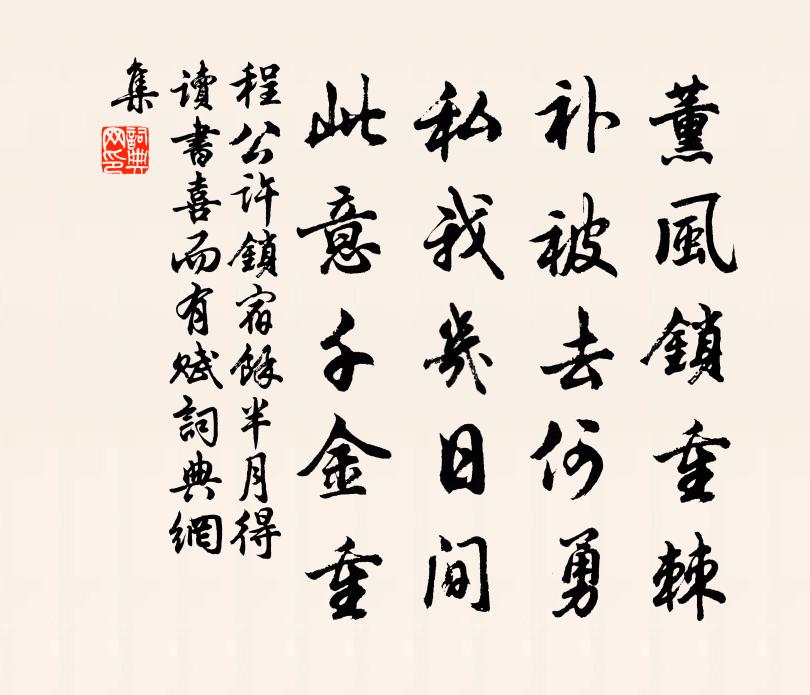 薰風鎖重棘
補被去何勇
私我幾日間
此意千金重
程公許鎖宿餘半月得
讀書喜而有賦詞典網
集
詞典網印